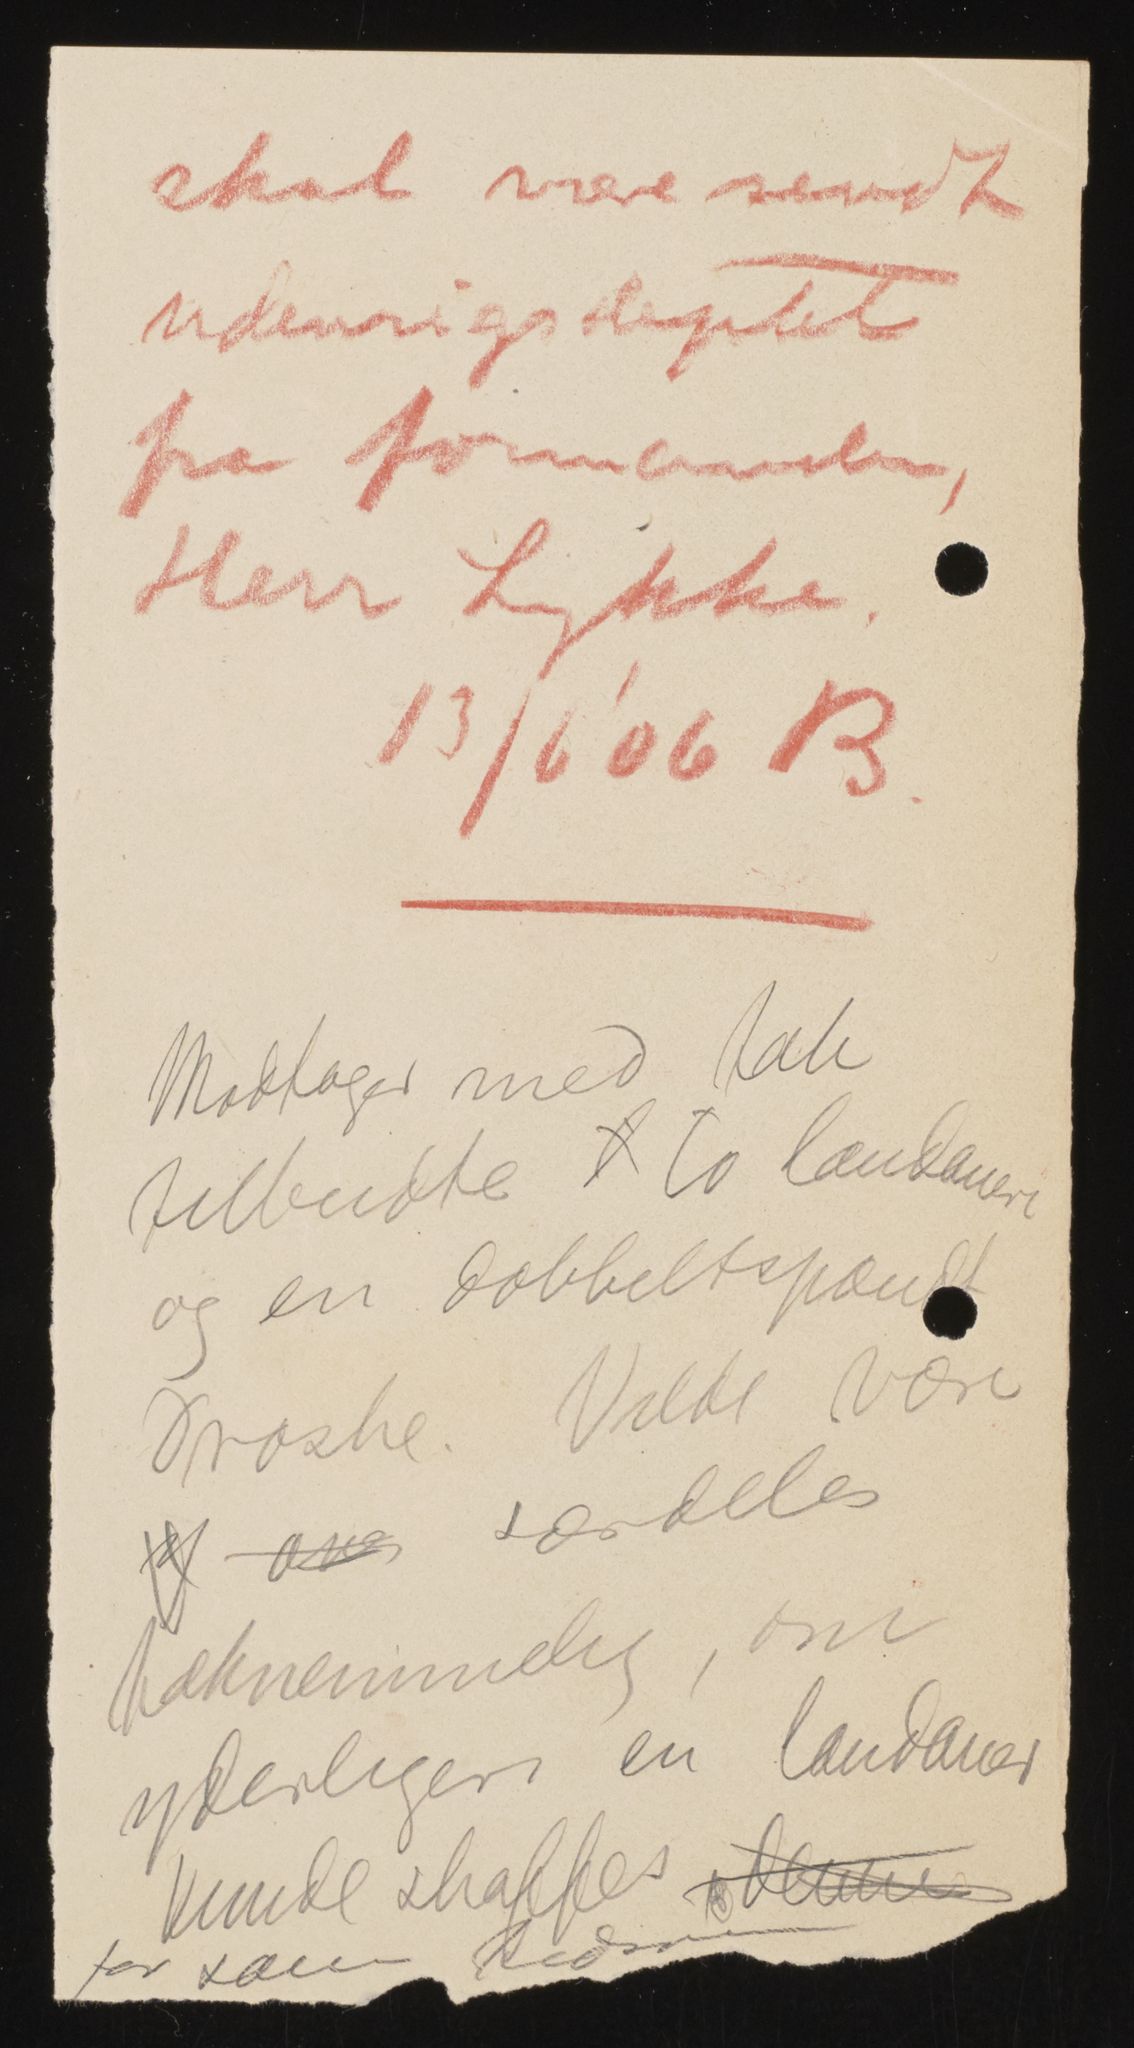 skal være sendt
udenrigsdeptet
fra formanden,
Herr Lykke.
13/6 '06 B.
Modtager med tak
tilbudte to landauere
og en dobbeltspændt
Droske. Vilde være
særdeles
taknemmelig, om
yderligere en landauer
kunde skaffes
for samme Tidsrum